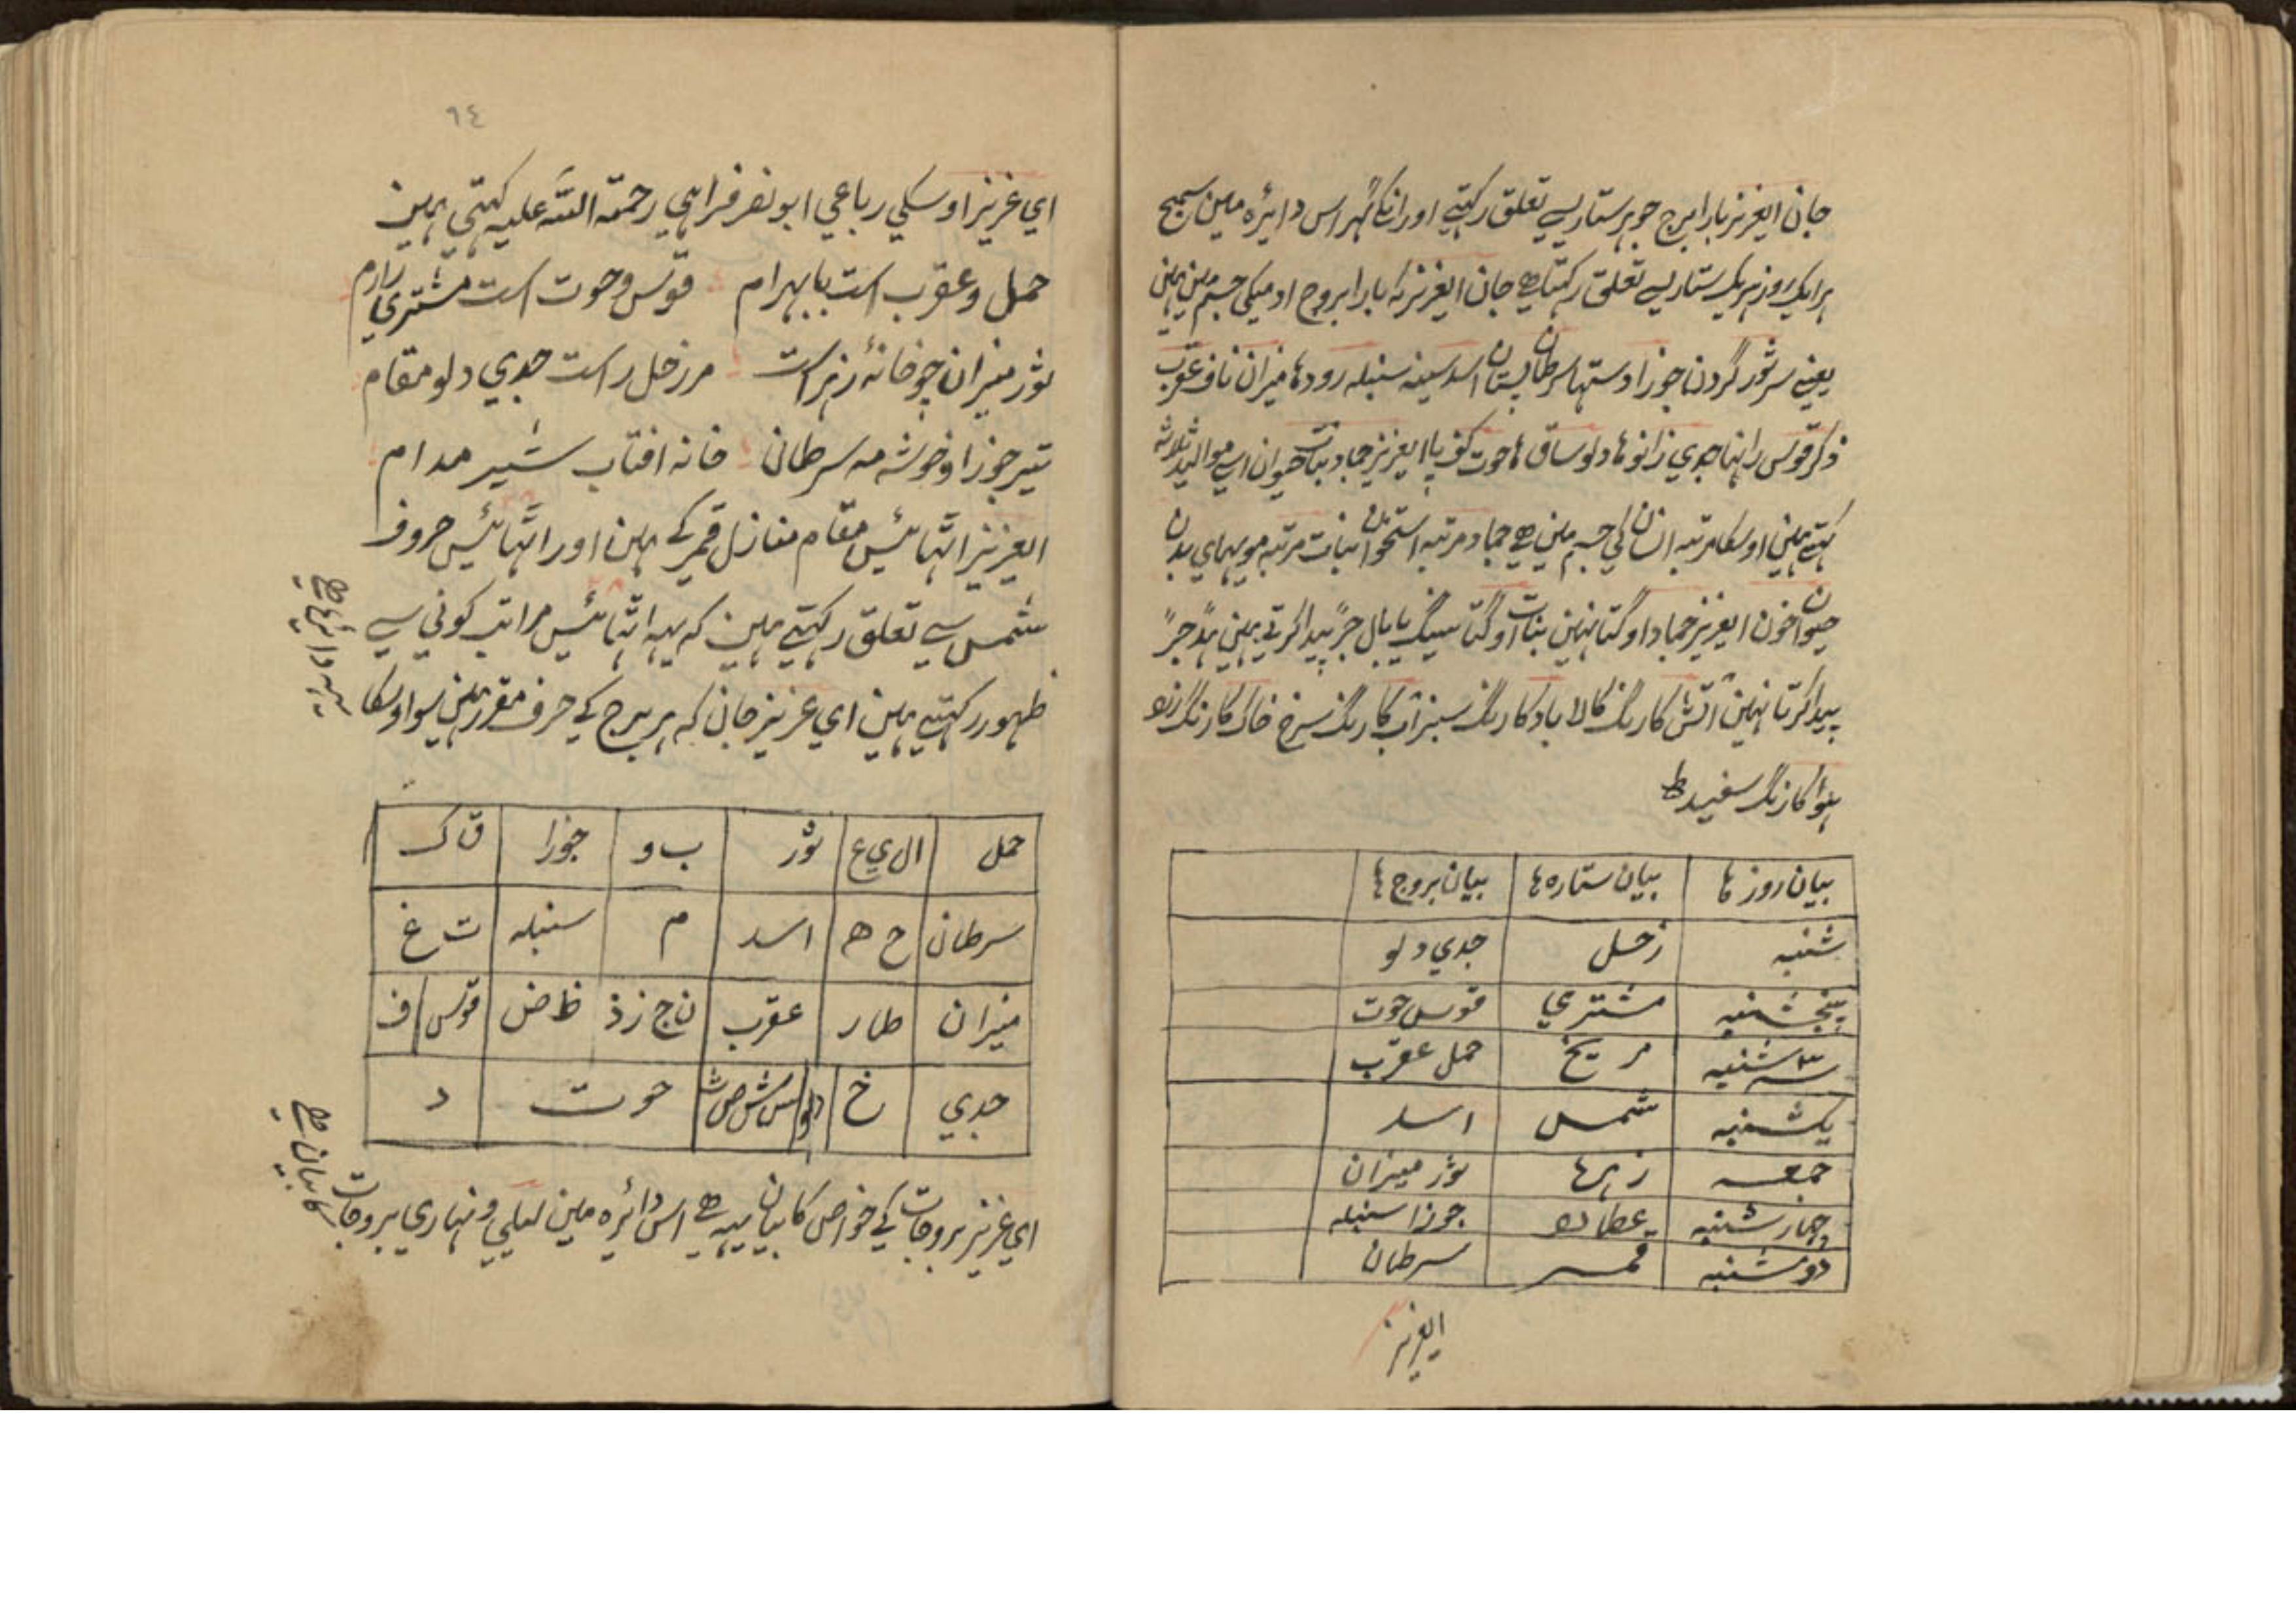 جان ایعزیز بارا برج جو ہر ستاریسے تعلق رکہتے اور انکا گہر اس دائرہ مین سمج
ہر ایک روز ہر یک ستاریسے تعلق رکہتا ہے جان ایعزیز کہ بارا بروج ادمیکی جسم مین ہین
یعنے سر ثور گردن جوزا دستہا سرطان پستان اسد سینہ سنبلہ رودہا میزان ناف عقرب
ذکر قوس رانہا جدی زانوہا دلو ساق ہا حوت کف پا ایعزیز جماد نبات حیوان اسے موالید ثلاثہ
کہتے ہین اوسکا مرتبہ انسان کی جسم مین ہے جماد مرتبہ استخوان نبات مرتبہ مویہای بدن
حیوان خون ایعزیز جماد اوگتا نہین نبات اوگتا سینگ یا بال جز پیدا کرتے ہین
پیدا کرتا نہین آتش کا رنگ کالا باد کا رنگ سبز آب کا رنگ سرخ خاک کا رنگ زرد
ہوا کا رنگ سفید ط
بیان روز ہا بیان ستارہ ہا بیان بروج ہا
شنبہ زحل جدي دلو
پنجشنبہ مشتري قوس حوت
سہ شنبہ مریخ حمل عقرب
یکشنبہ شمس اسد
جمعہ زہرہ ثور میزان
چہار شنبہ عطارد جوزا سنبلہ
دوشنبہ قمر سرطان
ایعزیز
٩٤
اي عزیز اوسکي رباعي ابو نصر فراہي رحمتہ اللہ علیہ کہتي ہین
حمل و عقرب است با بہرام قوس و حوت است مشتري را رام
ثور میزان چو خانۂ زہر است مر زحل راست جدي دلو مقام
تیر جوزا و خوشہ مہ سرطان خانہ افتاب شیر مدام
ایعزیز اتہائیس مقام منازل قمر کے ہین اور اتہائیس حروف
شمس سے تعلق رکہتے ہین کہ یہہ اتہائیس مراتب کوني سے
ظہور رکہتے ہین اي عزیز جان کہ ہر برج کے حرف مقرر ہین سو اوسکا
یہہ دائرہ ہے
حمل ا ل ي ع ثور ب و جوزا ق ک
سرطان ح ھ اسد م سنبلہ ت غ
میزان ط ر عقرب ن ج ز ذ ظ ض قوس ف
جدي خ دلو س ش ص ث حوت د
اي عزیز بروجات کے خواص کا بیان یہہ ہے اس دائرہ مین لیلي و نہاري بروجات
کا بیان ہے